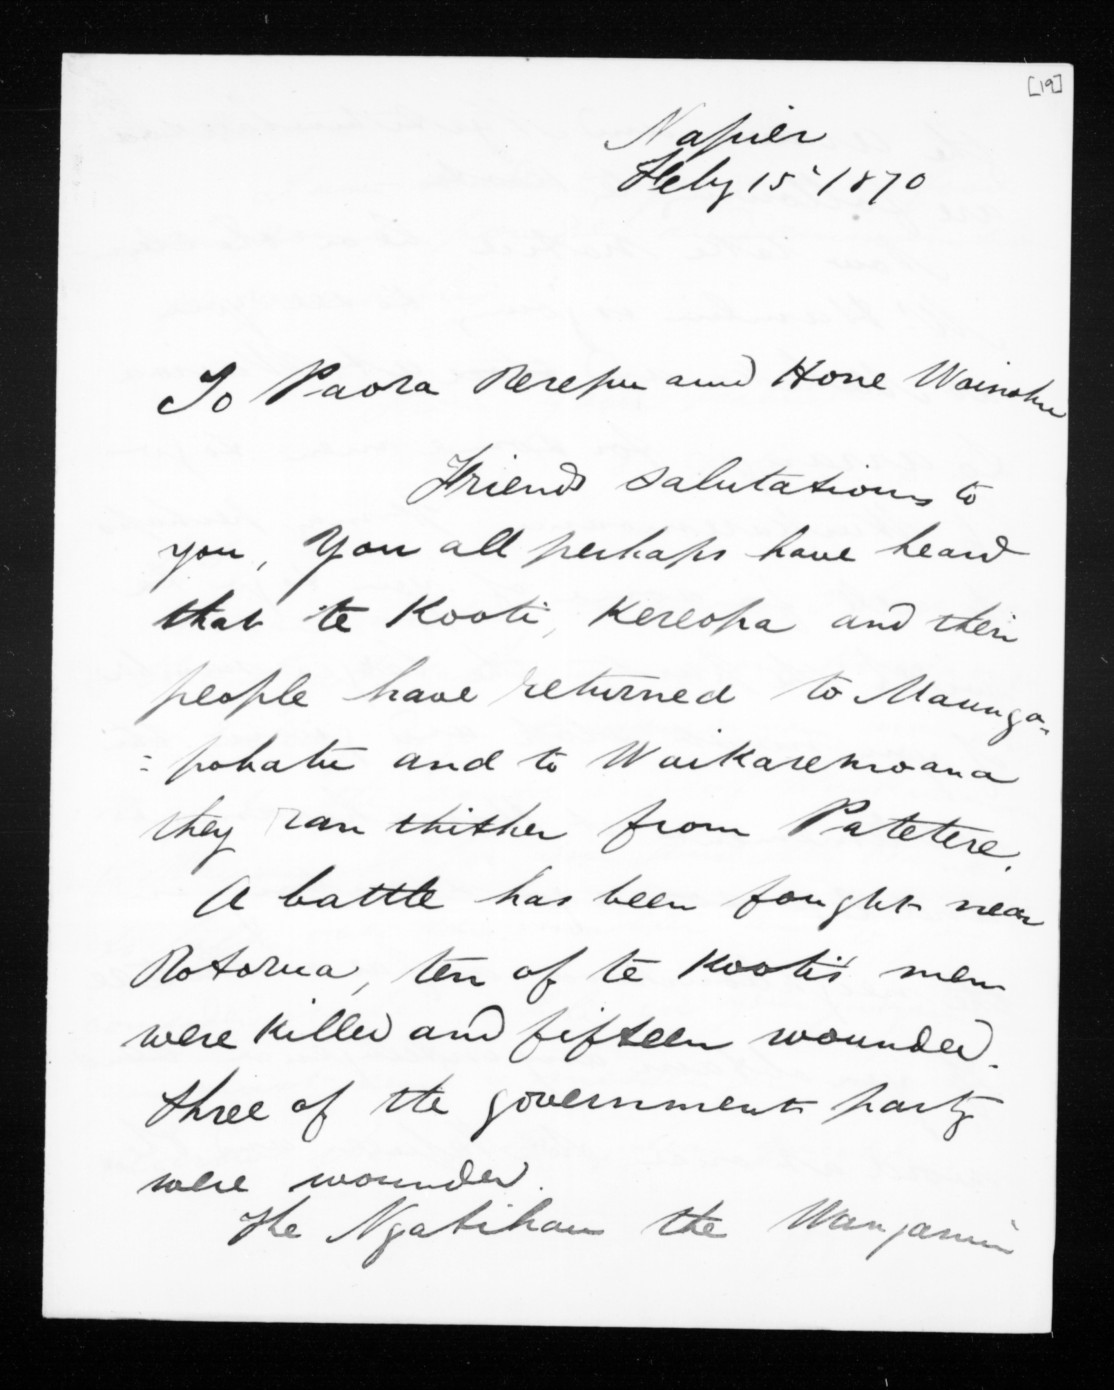 [19]
Napier
Feby 15th 1870
To Paora Rerepu and Hone Wainohu
Friends salutations to
you, You all perhaps have heard
that te Kooti, Kereopa and their
people have returned to Maunga-
=pohatu and to Waikaremoana
they ran thither from Patetere.
A battle has been fought near
Rotorua, ten of te Kooti's men
were killed and fifteen wounded.
three of the government party
were wounded.
The Ngatihau the Wanganui